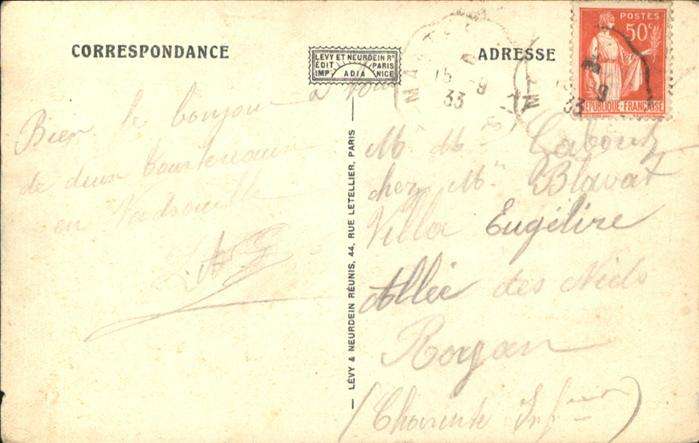 CORRESPONDANCE
LEVY ET NEURDEIN Rs
EDIT PARIS
IMP. ADIA NICE
ADRESSE
POSTES
50c
REPUBLIQUE FRANÇAISE
15 9
33
Bien le bonjour à
de deux
en
— LÉVY & NEURDEIN RÉUNIS, 44, RUE LETELLIER, PARIS —
Mr Me
chez Mr Blavat
Villa Eugélire
Allée des Nids
Royan
(Charente Infre)